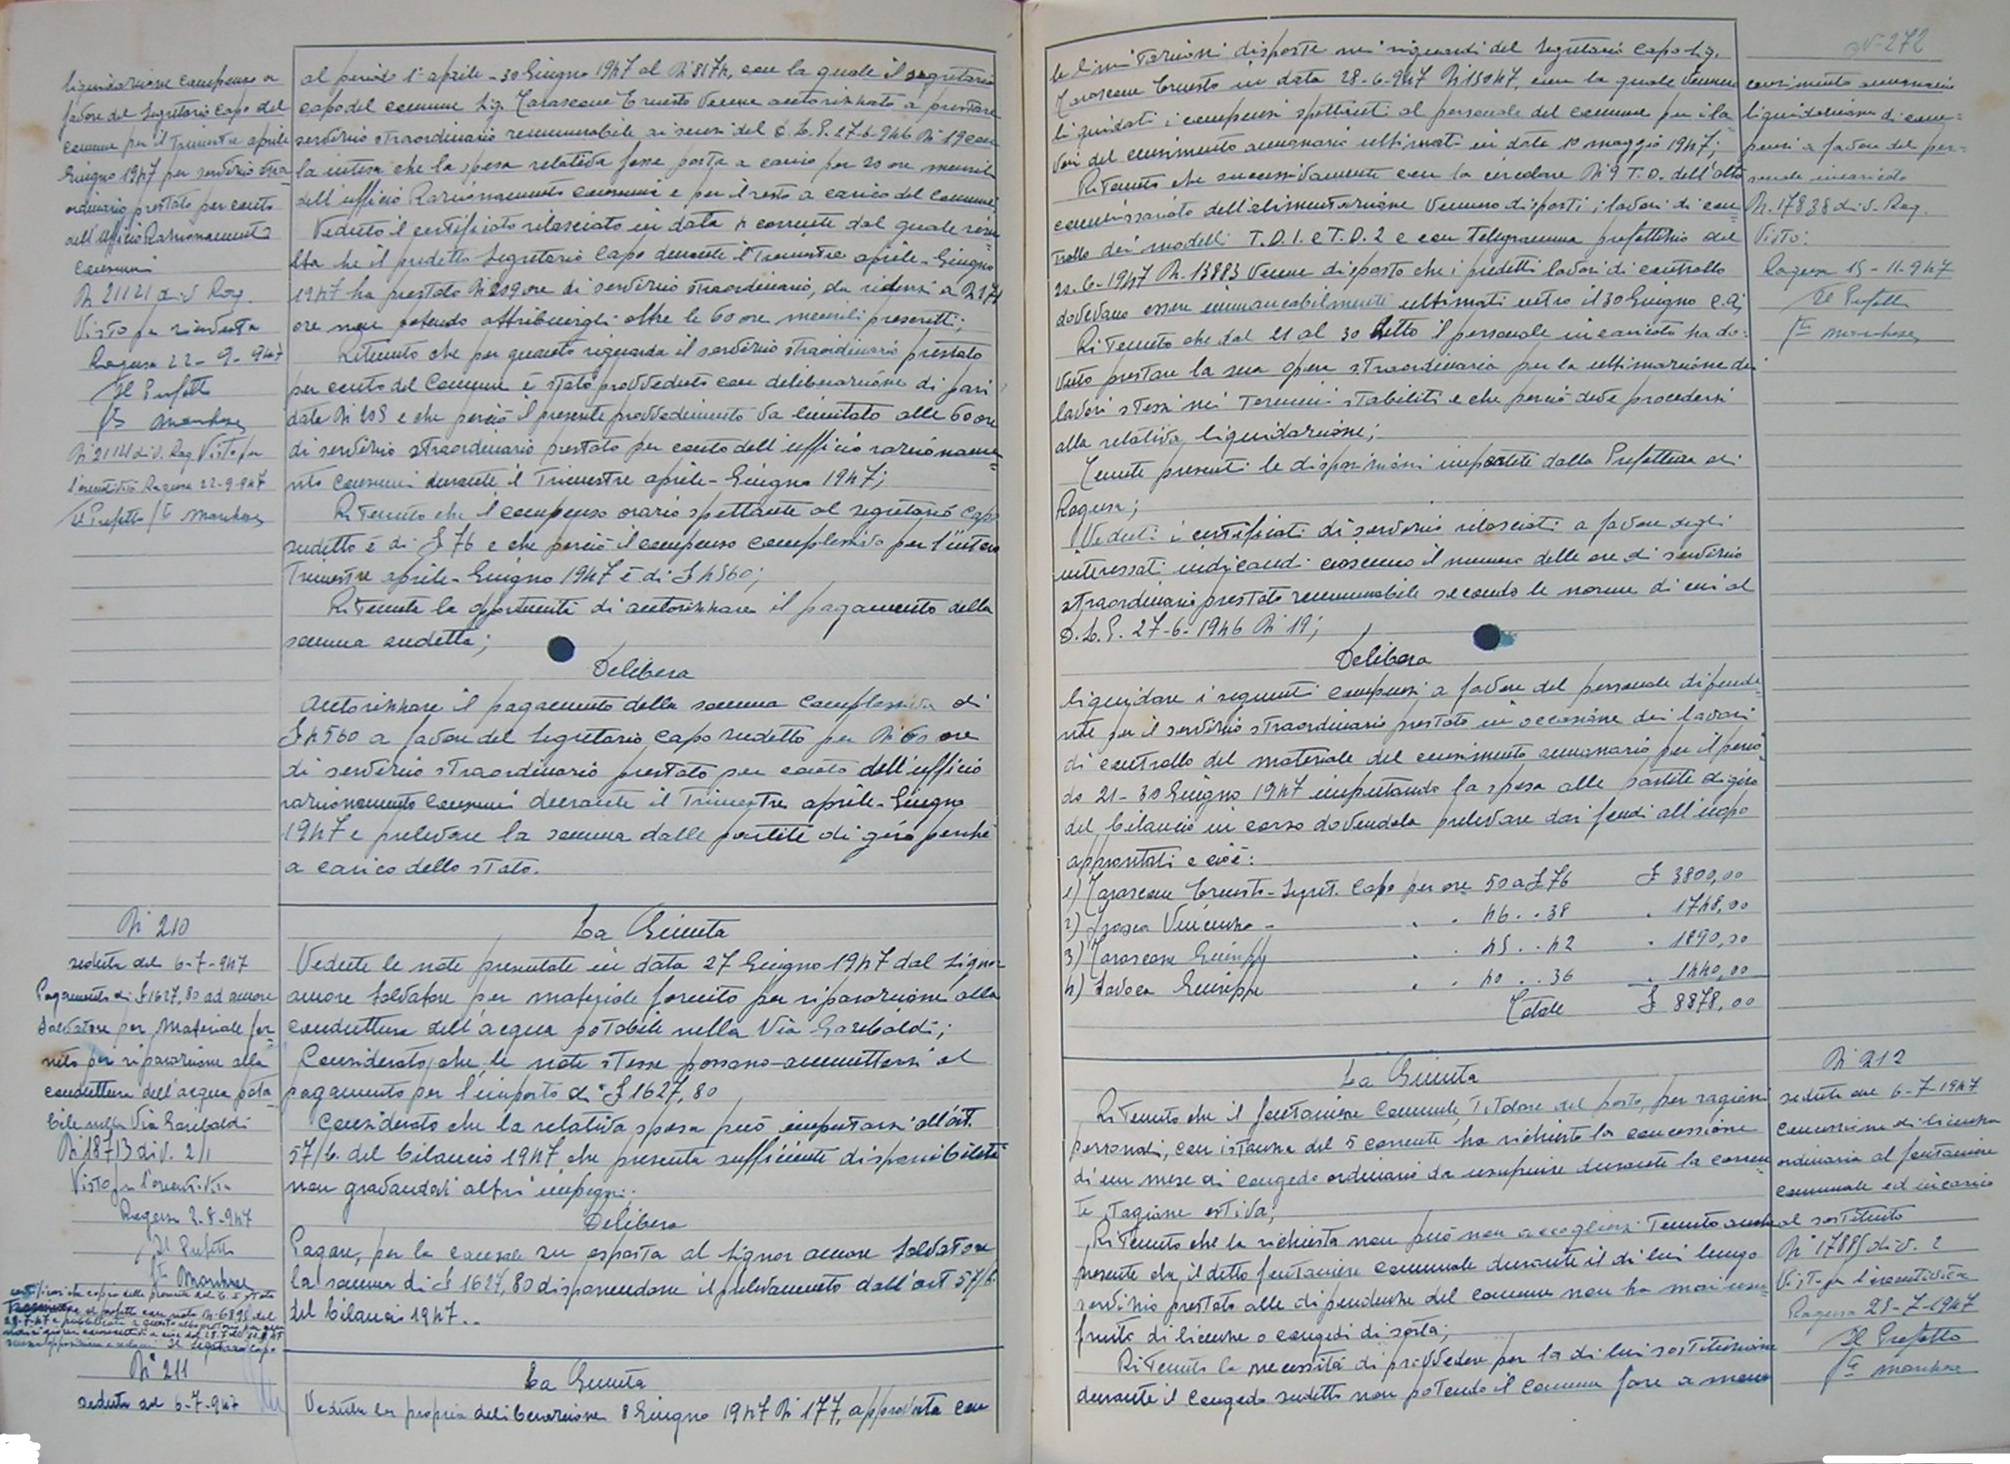 liquidazione compenso a
favore del Segretario Capo del
comune per il Trimestre aprile
Giugno 1947 per servizio stra=
ordinario prestato per conto
dell'ufficio Razionamento
consumi
N. 21121 div. Rag.
Visto per
Ragusa 22-9-947
Il Prefetto
Fto
N. 21121 div. Rag. Visto per
l'esecutività Ragusa 22-9-947
Il Prefetto Fto
al periodo 1° aprile - 30 Giugno 1947 al N. 8174, con la quale il segretario
capo del comune Sig. Tarascone Ernesto venne autorizzato a prestare
servizio straordinario remunerabile ai sensi del D.L.P. 27-6-946 N. 19 con
la intesa che la spesa relativa fosse posta a carico per 20 ore mensili
dell'ufficio Razionamento consumi e per il resto a carico del comune;
Veduto il certificato rilasciato in data 4 corrente dal quale risu
lta che il predetto Segretario Capo durante il Trimestre aprile-Giugno
1947 ha prestato N. ore di servizio straordinario, da ridursi a N. 174
ore non potendo attribuirgli oltre le 60 ore mensili prescritte;
Ritenuto che per quanto riguarda il servizio straordinario prestato
per conto del Comune è stato provveduto con deliberazione di pari
data N. 209 e che perciò il presente provvedimento va limitato alle 60 ore
di servizio straordinario prestato per conto dell'ufficio razioname=
nto consumi durante il Trimestre aprile-Giugno 1947;
Ritenuto che il compenso orario spettante al segretario Capo
sudetto è di £ 76 e che perciò il compenso complessivo per l'intero
Trimestre aprile-Giugno 1947 è di £ 4560;
Ritenuta la opportunità di autorizzare il pagamento della
somma sudetta;
Delibera
Autorizzare il pagamento della somma complessiva di
£ 4560 a favore del Segretario Capo sudetto per N. 60 ore
di servizio straordinario prestato per conto dell'ufficio
razionamento consumi durante il Trimestre aprile-Giugno
1947 e prelevare la somma dalle partite di giro perchè
a carico dello stato.
N° 210
seduta del 6-7-947
Pagamento di £ 1627,80 ad Amore
Salvatore per Materiale for=
nito per riparazione alla
conduttura dell'acqua pota=
bile nella Via Garibaldi
N. 18713 div. 2/1
Visto per l'esecutività
Ragusa 2-8-947
Il Prefetto
Fto
La Giunta
Vedute le note presentate in data 27 Giugno 1947 dal Signor
Amore Salvatore per materiale fornito per riparazione alla
conduttura dell'acqua potabile nella Via Garibaldi;
Considerato che le note stesse possono ammettersi al
pagamento per l'importo di £ 1627,80
Considerato che la relativa spesa può imputarsi all'art.
57/b. del bilancio 1947 che presenta sufficiente disponibilità
non gravandovi altri impegni;
Delibera
Pagare, per la causale su esposta al Signor Amore Salvatore
la somma di £ 1627,80 disponendone il prelevamento dall'art 57/b
del bilancio 1947.
N° 211
seduta del 6-7-947
La Giunta
Veduta la propria deliberazione 8 Giugno 1947 N. 177, approvata con
N-272
le limitazioni disposte nei riguardi del Segretario Capo Sig.
Tarascone Ernesto in data 28-6-947 N. 15047, con la quale vennero
liquidati i compensi spettanti al personale del comune per i la
vori del censimento annonario ultimati in data 10 maggio 1947;
Ritenuto che successivamente con la circolare N. 9 T.D. dell'alto
commissariato dell'alimentazione vennero disposti i lavori di con=
trollo dei modelli T.D.1. e T.D.2 e con telegramma prefettizio del
20-6-1947 N. 13883 venne disposto che i predetti lavori di controllo
dovevano essere immancabilmente ultimati entro il 30 Giugno c.a;
Ritenuto che dal 21 al 30 detto il personale incaricato ha do=
vuto prestare la sua opera straordinaria per la ultimazione dei
lavori stessi nei termini stabiliti e che perciò deve procedersi
alla relativa liquidazione;
Tenute presenti le disposizioni impartite dalla Prefettura di
Ragusa;
Veduti i certificati di servizio rilasciati a favore degli
interessati indicandi ciascuno il numero delle ore di servizio
straordinario prestato remunerabile secondo le norme di cui al
D.L.P. 27-6-1946 N. 19;
Delibera
liquidare i seguenti compensi a favore del personale dipende=
nte per il servizio straordinario prestato in occasione dei lavori
di controllo del materiale del censimento annonario per il perio
do 21-30 Giugno 1947 imputando la spesa alle partite di giro
del bilancio in corso dovendola prelevare dai fondi all'uopo
approntati e cioè:
1) Tarascone Ernesto - Segret. Capo per ore 50 a £ 76 £ 3800,00
2) Vincenzo - . . 46 . . 38 . 1748,00
3) Tarascone Giuseppe . . 45 . . 42 . 1890,00
4) Giuseppe . . 40 . . 36 . 1440,00
Totale £ 8878,00
censimento annonario
liquidazione di com=
pensi a favore del per=
sonale incaricato
N. 17838 div. Rag.
Visto:
Ragusa 15-11-947
Il Prefetto
Fto
La Giunta
Ritenuto che il fontaniere Comunale, Titolare del posto, per ragioni
personali, con istanza del 5 corrente ha richiesto la concessione
di un mese di congedo ordinario da usufruire durante la corren
te stagione estiva;
Ritenuto che la richiesta non può non accogliersi tenuto anche
presente che il detto fontaniere comunale durante il di lui lungo
servizio prestato alle dipendenze del comune non ha mai usu=
fruito di licenze o congedi di sorta;
Ritenuta la necessità di provvedere per la di lui sostituzione
durante il congedo sudetto non potendo il comune fare a meno
N° 212
seduta del 6-7-1947
Concessione di licenza
ordinaria al fontaniere
comunale ed incarico
al sostituto
N° 17885 div. 2
Visto per l'esecutività
Ragusa 25-7-1947
Il Prefetto
Fto